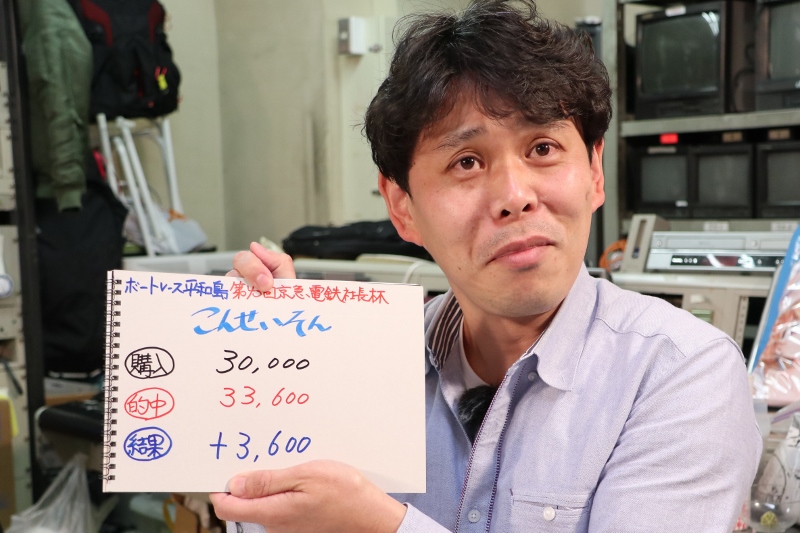 ボートレース平和島 第53回京急電鉄社長杯
こんせいそん
購入 30,000
的中 33,600
結果 +3,600